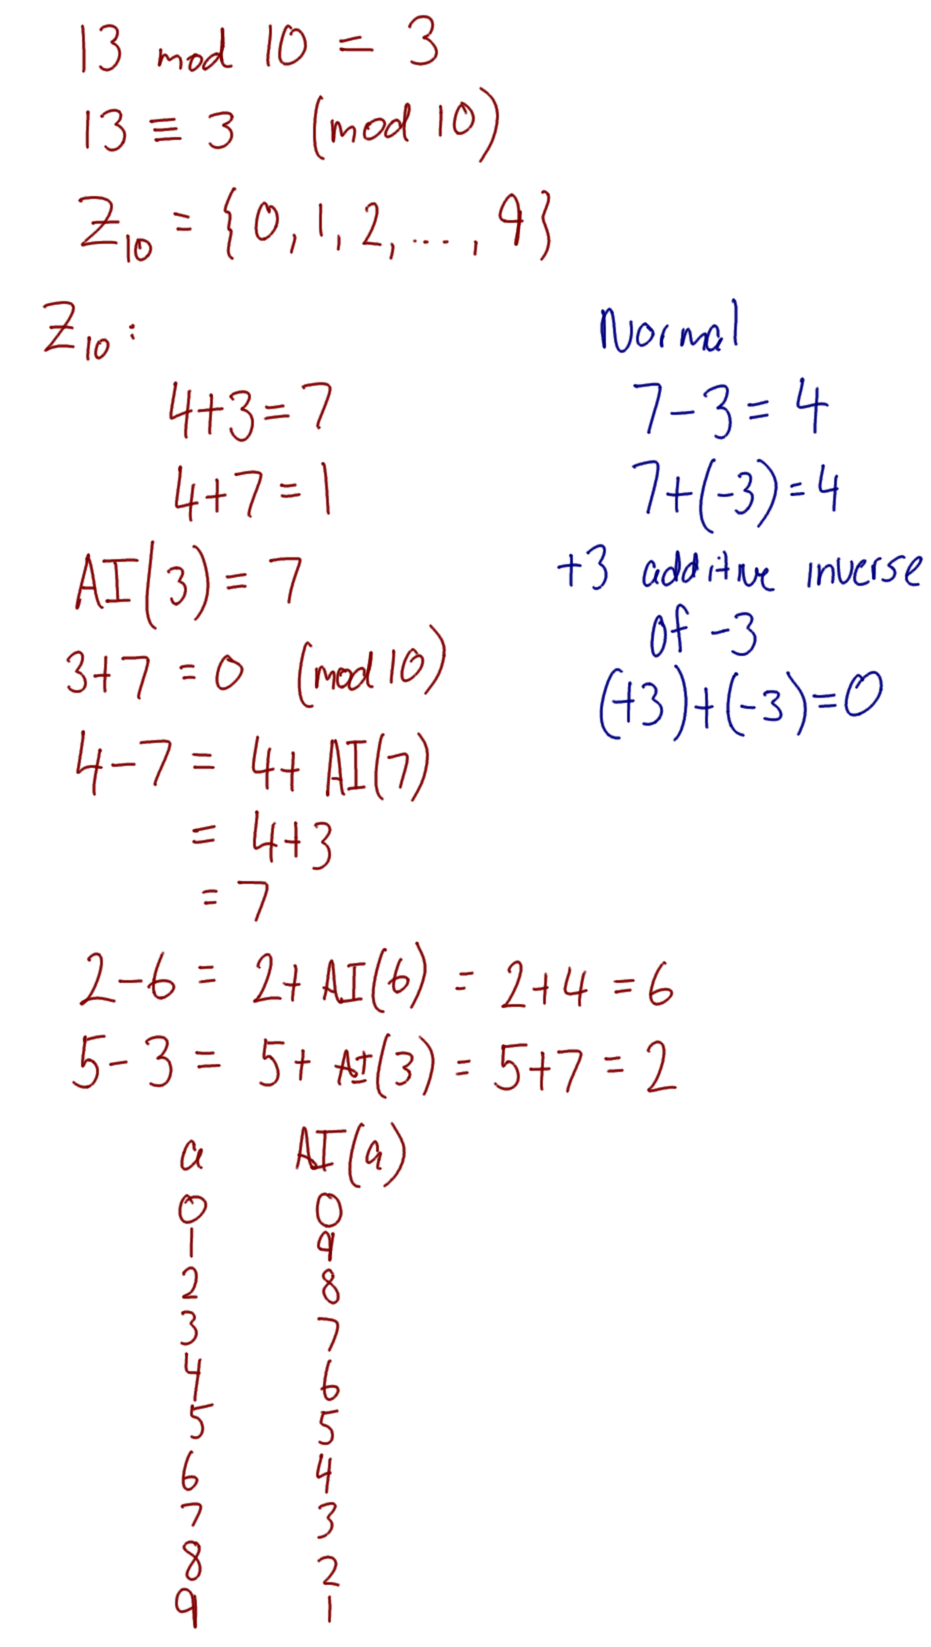 13 mod 10 = 3
13 ≡ 3 (mod 10)
Z₁₀ = {0, 1, 2, ..., 9}
Z₁₀:
4+3=7
4+7=1
AI(3)=7
3+7=0 (mod 10)
4-7= 4+ AI(7)
= 4+3
=7
2-6= 2+ AI(6) = 2+4=6
5-3= 5+ AI(3) = 5+7=2
a AI(a)
0 0
1 9
2 8
3 7
4 6
5 5
6 4
7 3
8 2
9 1
Normal
7-3=4
7+(-3)=4
+3 additive inverse
of -3
(+3)+(-3)=0